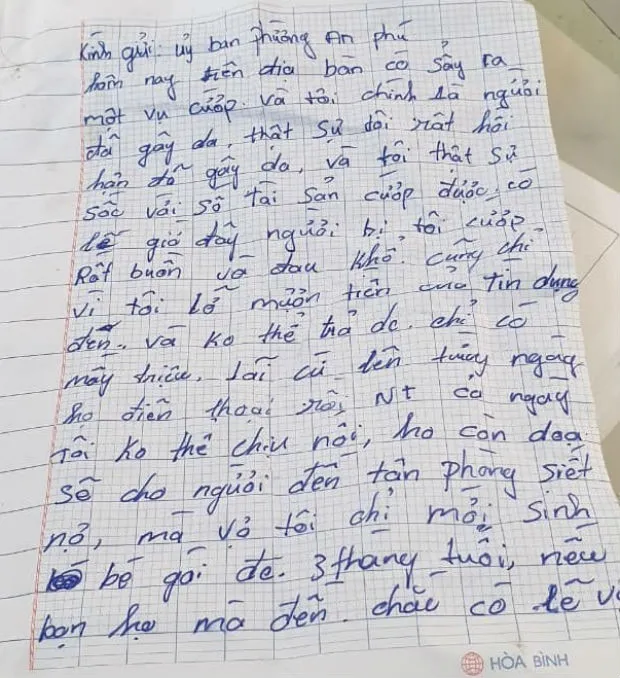 Kính gửi: uỷ ban phường An phú
hôm nay trên địa bàn có sảy ra
một vụ cướp. và tôi chính là người
đã gây da, thật sự tôi rất hối
hận đã gây da, và tôi thật sự
sốc với số tài sản cướp được, có
lẽ giờ đây người bị tôi cướp
Rất buồn và đau khổ. cũng chỉ
vì tôi lỡ mượn tiền của Tín dụng
đen. và ko thể trả dc. chỉ có
mấy triệu. lãi cứ lên từng ngày
họ điện thoại rồi Nt cả ngày
Tôi ko thể chịu nổi, họ còn doạ
sẽ cho người đến tận phòng siết
nợ, mà vợ tôi chỉ mới sinh
bé gái dc. 3 tháng tuổi, nếu
bọn họ mà đến. chắc có lẽ
HÒA BÌNH